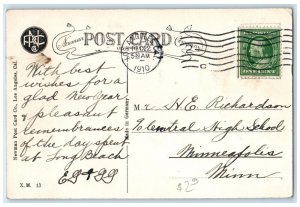 POST CARD
DEC 22
5 30 AM
1910
2
C
ONE CENT
Newman Post Card Co., Los Angeles, Cal.
Made in Germany
With best
wishes for a
glad New Year
& pleasant
remembrances
of the day spent
at Long Beach
Mr. H. E. Richardson
Central High School
Minneapolis
Minn
X. M. 13